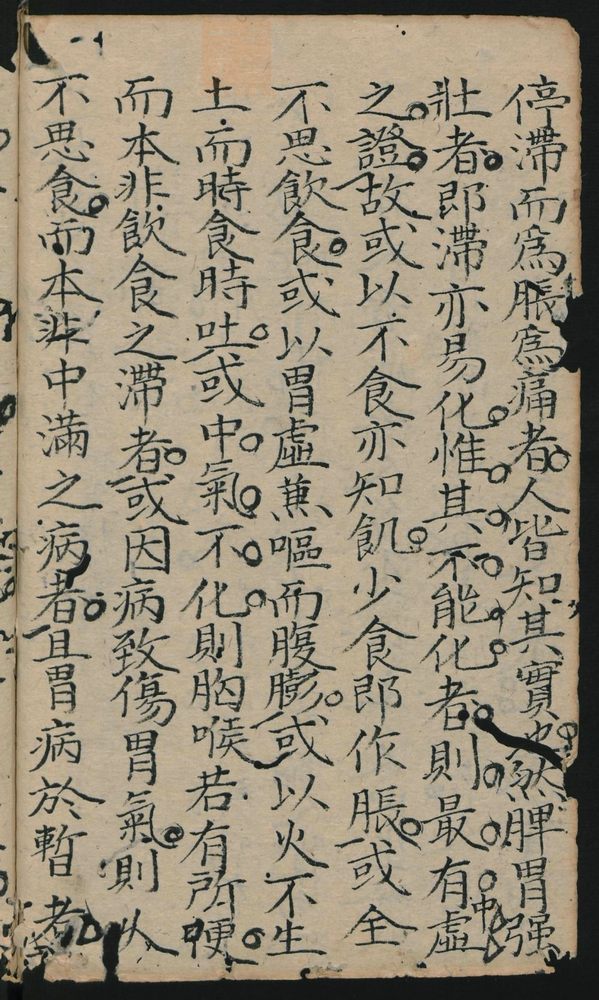 停滯而爲脹爲痛者人皆知其實也然脾胃强
壯者即滯亦易化惟其不能化者則最有虛中
之證故或以不食亦知飢少食即作脹或全
不思飲食或以胃虛兼嘔而腹膨或以火不生
土而時食時吐或中氣不化則胸喉若有所哽
而本非飲食之滯者或因病致傷胃氣則久
不思食而本非中滿之病者且胃病於暫者